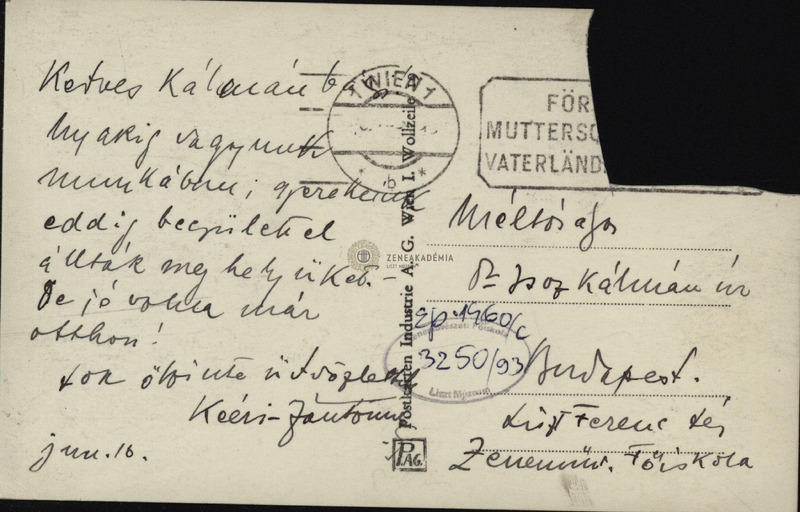 Kedves Kálmán bácsi
nyakig vagyunk
munkában, gyerekeink
eddig becsülettel
állták meg helyüket. –
De jó volna már
otthon!
sok őszinte üdvözlettel
Kéri-Szántó
jun. 16.
1 WIEN 1
* b *
FÖR
MUTTERSC
VATERLÄND
Postkarten Industrie A. G. Wien I. Wollzeile
PAG.
ZENEAKADÉMIA
LISZT M
Méltóságos
Dr Isoz Kálmán úr
Budapest.
Liszt Ferenc tér
Zeneműv. Főiskola
Ep. 1960/c
Zeneművészeti Főiskola
3250/93
Liszt Múzeum